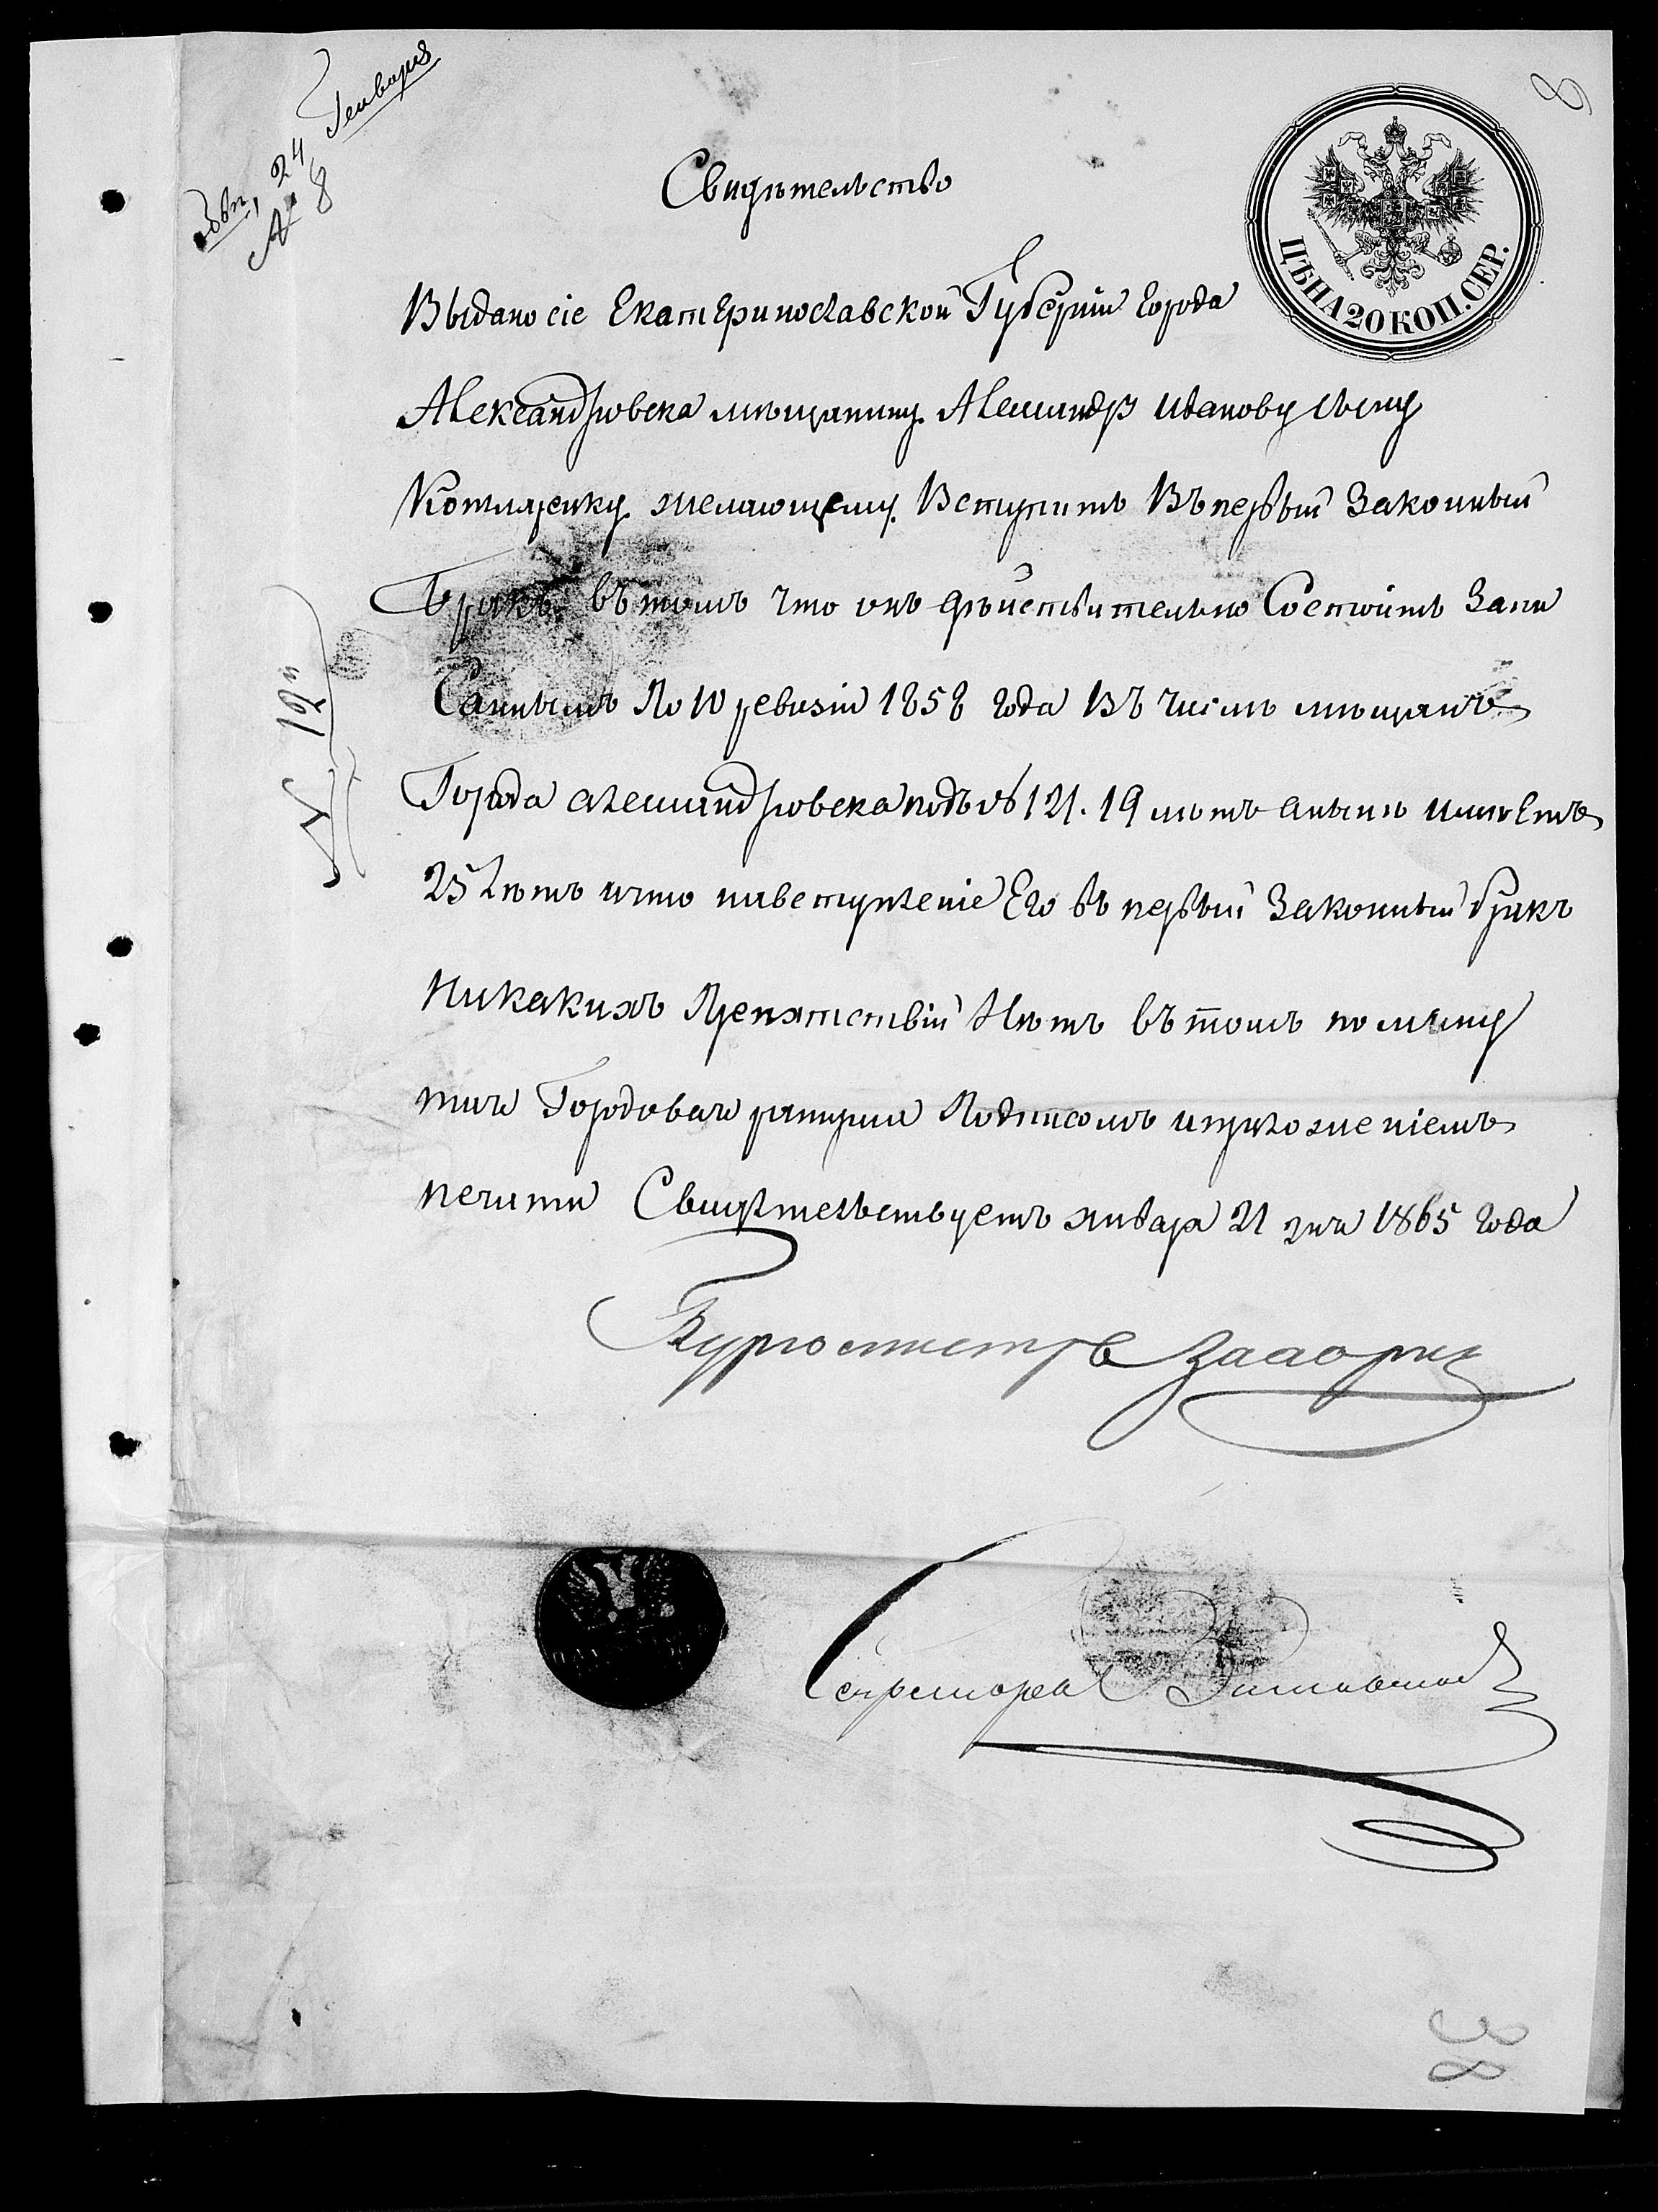 24 Генваря
№ 8
8
Свидѣтельство
ЦѢНА 20 КОП. СЕР.
Выдано сіе Екатеринославской Губерніи города
Александровска мѣщанину Александр Иванову сыну
Котляренку желающему Вступить Въ первый Законный
Бракъ въ томъ что онъ дѣйствительно Состоитъ Запи
Саннымъ По 10 ревизіи 1858 года Въ числѣ мѣщанъ
Города Александровска подъ № 121. 19 лѣтъ а нынѣ имѣетъ
25 Лѣтъ и что на вступленіе Его въ первый Законный бракъ
Никакихъ Препятствій Нѣтъ въ томъ по
Городовая ратуша Подписомъ и приложеніемъ
печати Свидѣтельствуетъ января 21 дня 1865 года
Бургомистръ
Секретарь
№ 19
38